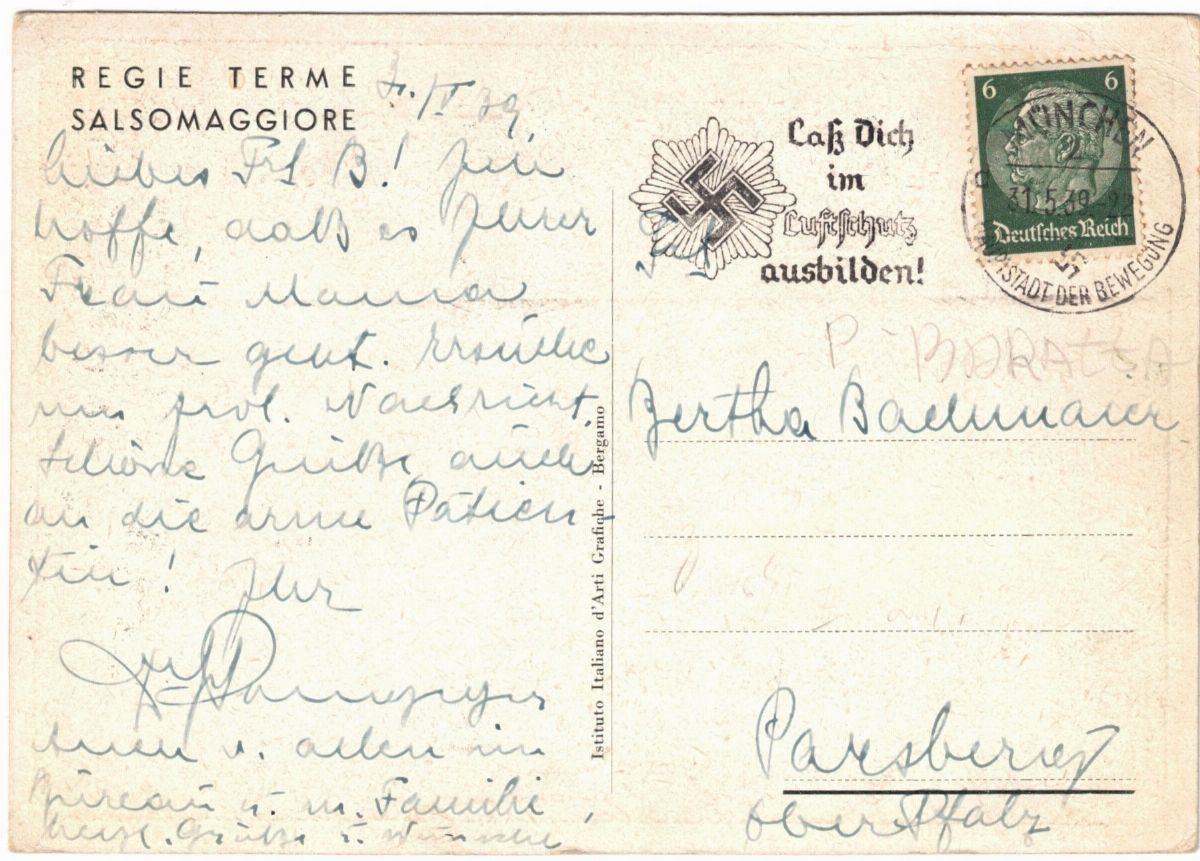 REGIE TERME
SALSOMAGGIORE
Liebes Frl B! Ich
hoffe, daß es Ihrer
Fräul Mama
besser geht. Ersuche
um frdl. Nachricht.
Schöne Grüße auch
an die arme Patien-
tin! Ihr
Auch v. allen im
Büreau u. m. Familie,
herzl. Grüße u. Wünsche
Istituto Italiano d'Arti Grafiche - Bergamo
Laß Dich
im
Luftschutz
ausbilden!
6 6
Deutsches Reich
MÜNCHEN
31.5.39
HAUPTSTADT DER BEWEGUNG
Bertha Bachmaier
Parsberg
Oberpfalz